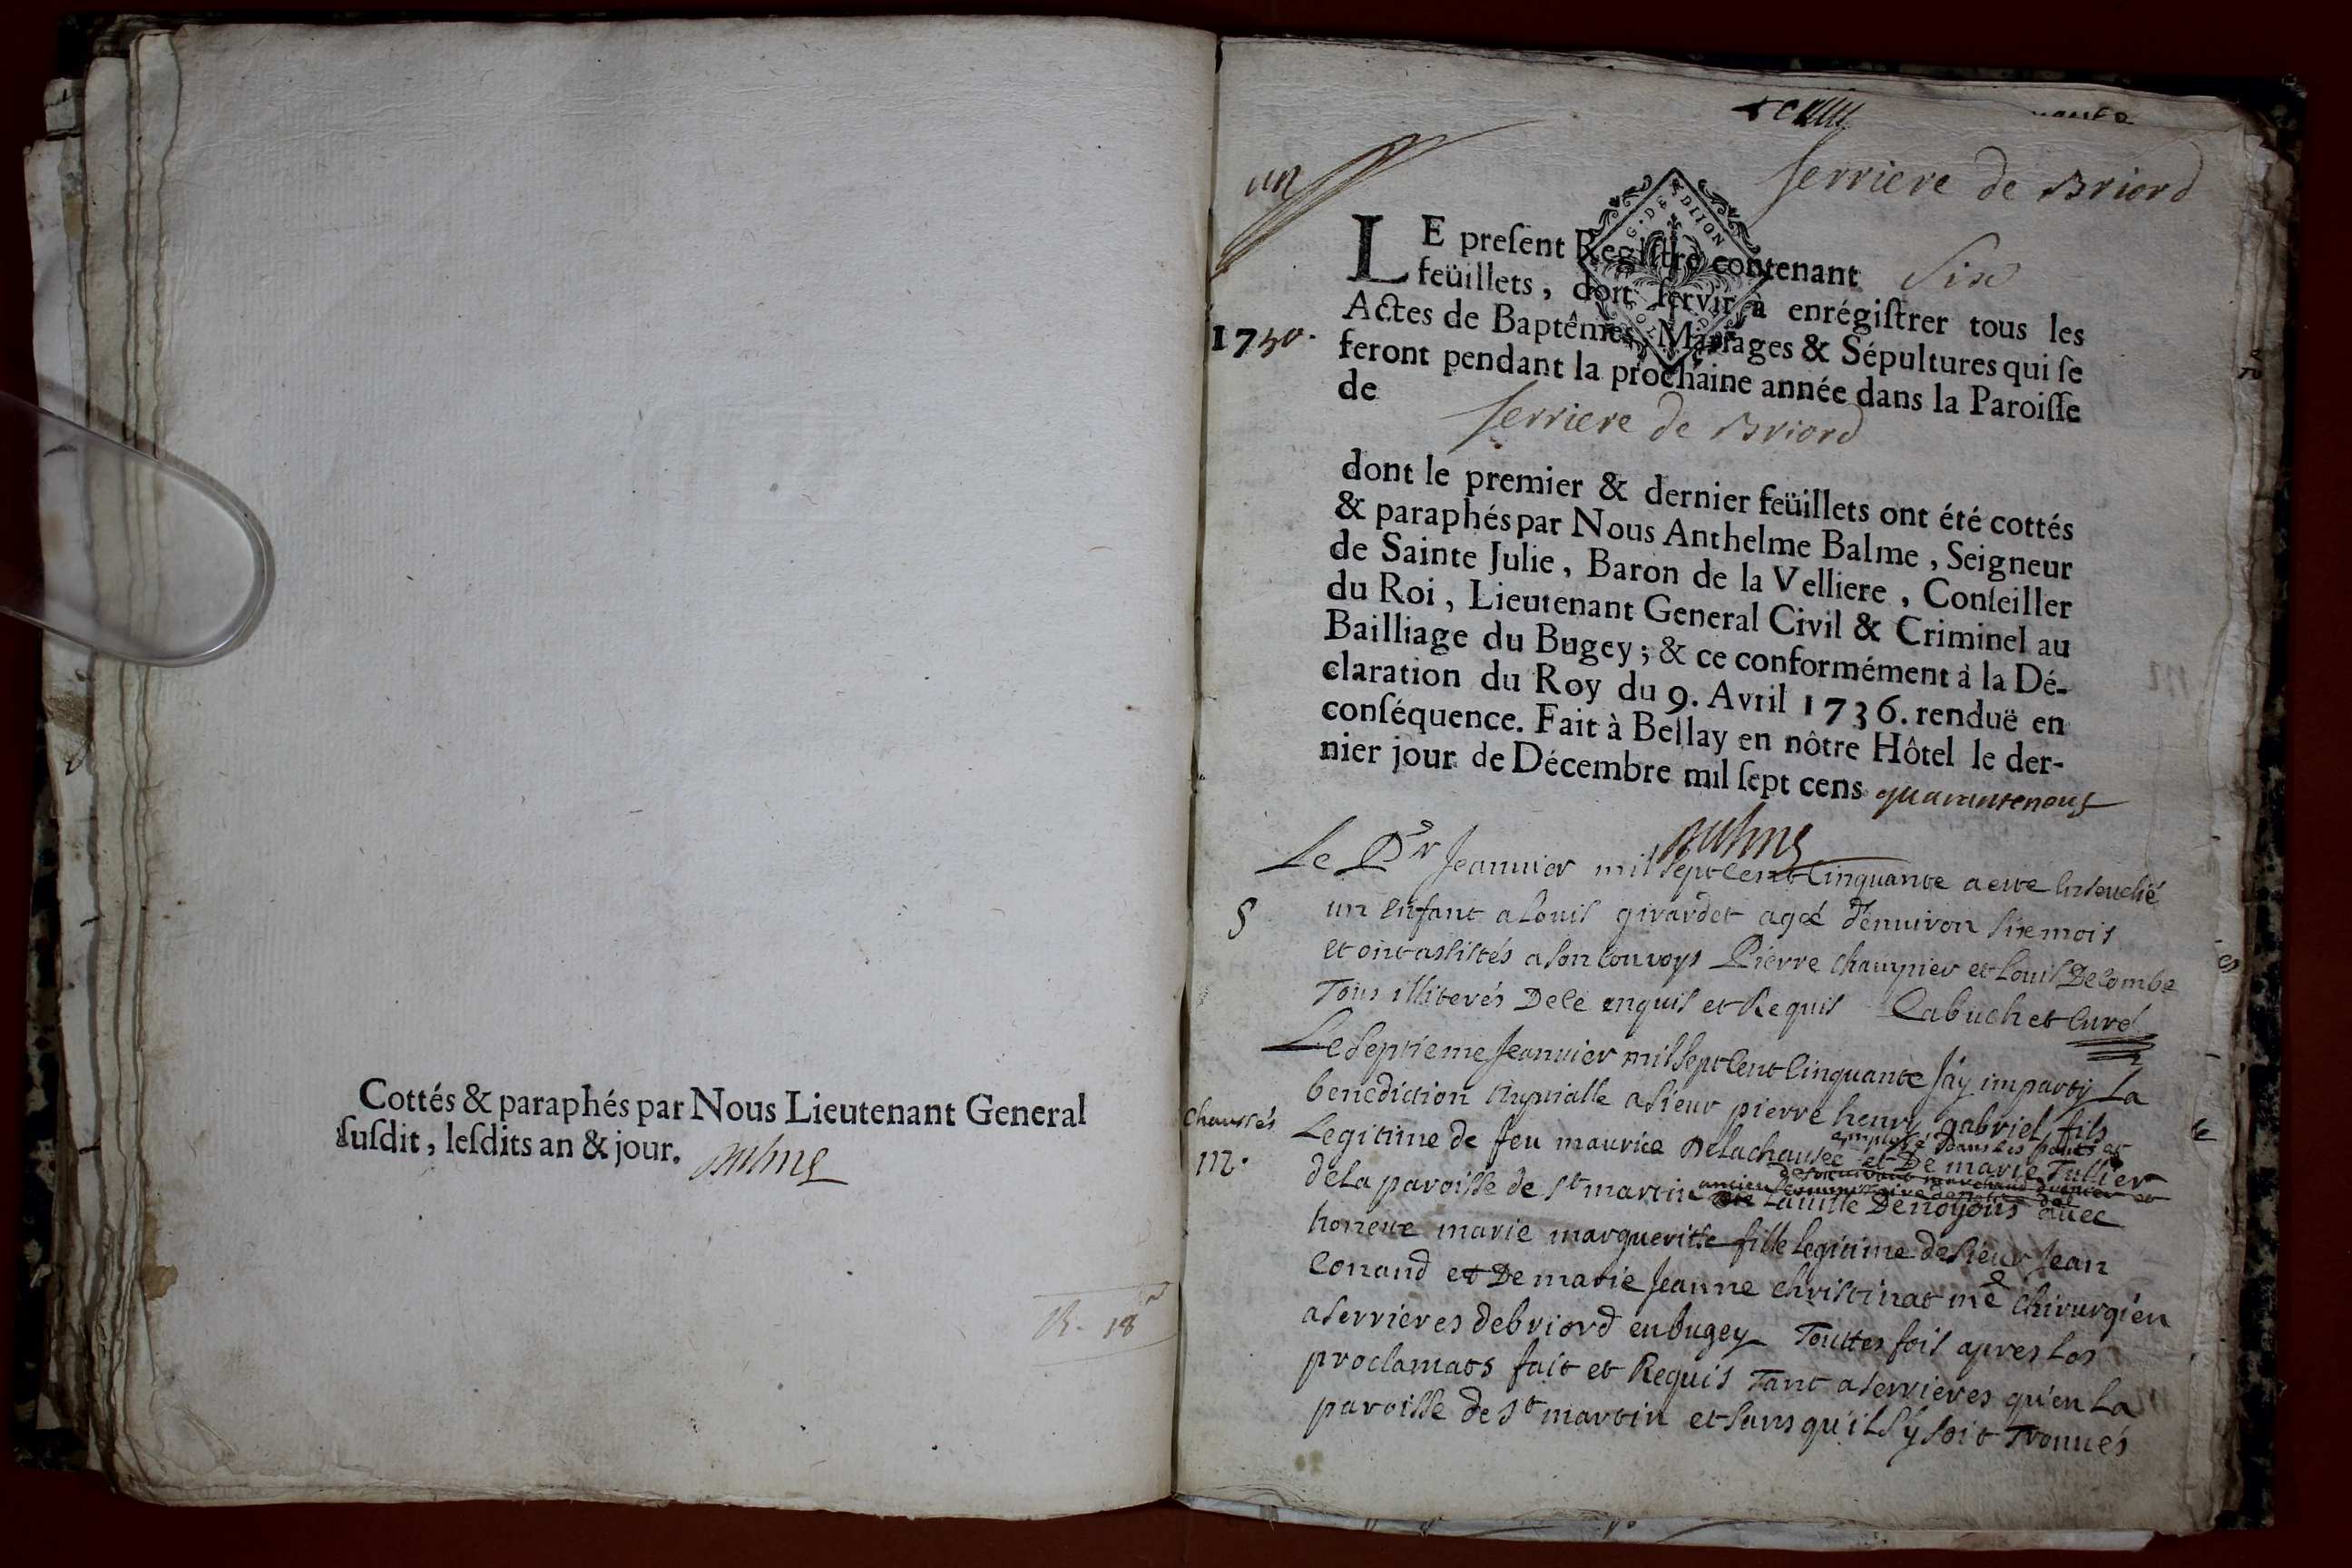 Cottés & paraphés par Nous Lieutenant General
ſuſdit, leſdits an & jour. Balme
R. 18
un
ſerriere de Briord
G. DE DIION
LE preſent Regiſtre contenant Six
feüillets, doit ſervir à enrégiſtrer tous les
Actes de Baptêmes, Mariages & Sépultures qui ſe
1750.
feront pendant la prochaine année dans la Paroiſſe
de ſerriere de Briord
dont le premier & dernier feüillets ont été cottés
& paraphés par Nous Anthelme Balme, Seigneur
de Sainte Julie, Baron de la Velliere, Conſeiller
du Roi, Lieutenant General Civil & Criminel au
Bailliage du Bugey; & ce conformément à la Dé-
claration du Roy du 9. Avril 1736. renduë en
conſéquence. Fait à Bellay en nôtre Hôtel le der-
nier jour de Décembre mil ſept cens quarante neuf
Balme
Le Pr Jeanvier mil sept cent cinquante a ete enseveli
S
un enfant a Louis girardet agé d'environ six mois
et ont assistés a son convoys Pierre champier et Louis Decombe
Tous illiterés De ce enquis et Requis Cabuchet curé
Le septieme Jeanvier mil sept cent cinquante J'ay imparty La
benediction nuptialle a sieur pierre henry gabriel fils
chaussés
m.
Legitime de feu maurice Delachausée et De marie Tullier
employé dans les
de La paroisse de st martin de La ville De noyons avec
ancien
honette marie margueritte fille legitime de sieur Jean
Conand et De marie Jeanne christinat me chirurgien
a serrieres de briord en bugey Touttes fois apres Les
proclamats fait et Requis Tant a serrieres qu'en La
paroisse de st martin et sans qu'il s'y soit Trouvés